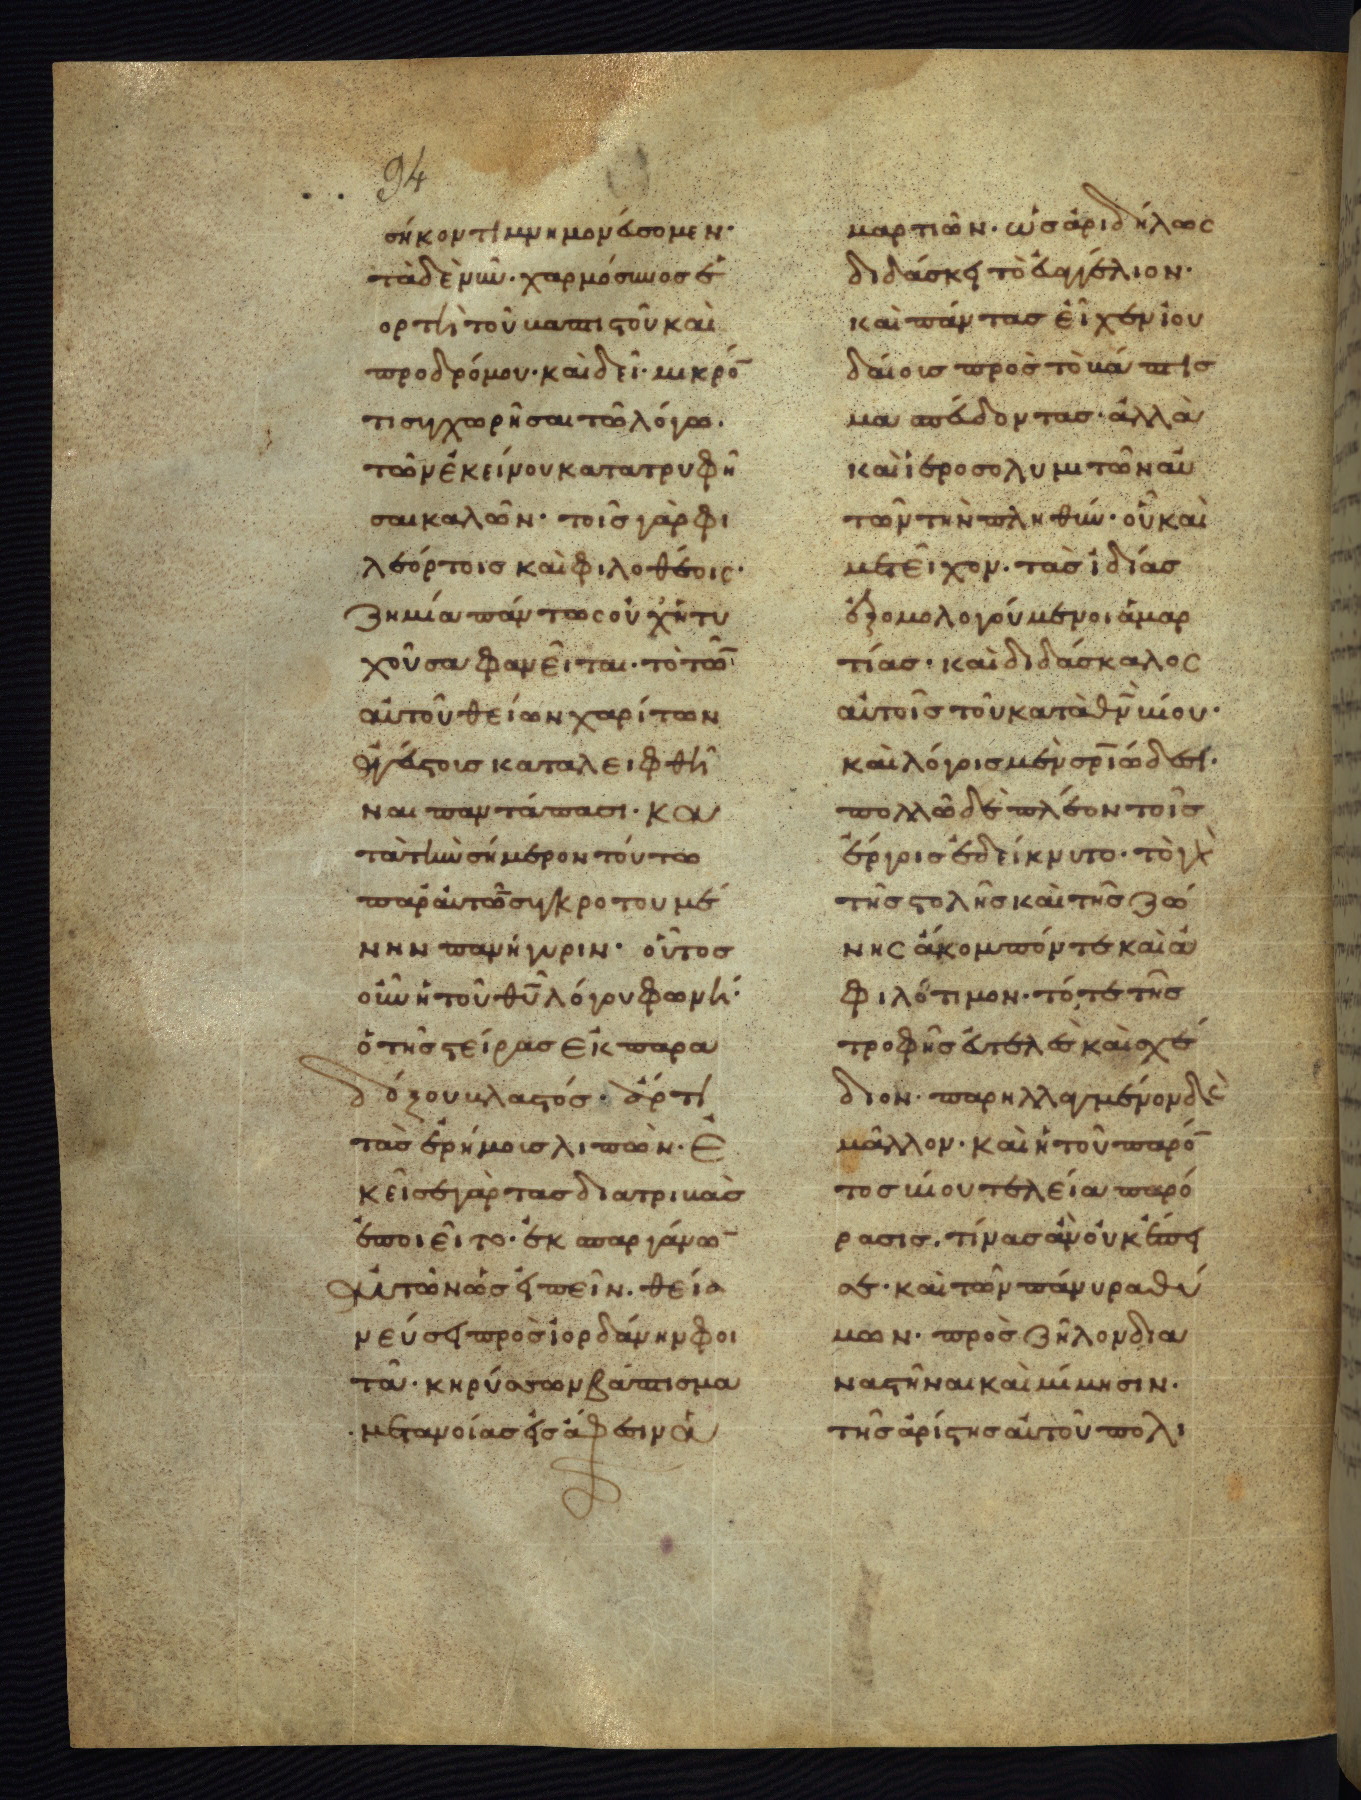 94
σήκοντι μνημονεύσομεν·
τὰ δὲ νῦν· χαρμόσυνος ἑ
ορτὴ τοῦ βαπτιστοῦ καὶ
προδρόμου· καὶ δεῖ μικρόν
τι συγχωρῆσαι τῶ λόγω·
τῶν ἐκείνου κατατρυφῆ
σαι καλῶν· τοῖς γὰρ φι
λεόρτοις καὶ φιλοθέοις·
ζημία πάντως οὐχ ἡ τυ
χοῦσα φανεῖται· τὸ τῶν
αὐτοῦ θείων χαρίτων
ἀγεύστοις καταλειφθῆ
ναι παντάπασι· κα
τὰ τὴν σήμερον τούτω
παρ' αὐτῶν συγκροτουμέ
νην πανήγυριν· οὗτος
οὖν ἡ τοῦ θυ λόγου φωνή·
ὁ τῆς στείρας ἐκ παρα
δόξου βλαστός· ἄρτι
τὰς ἐρήμοις λιπών· ἐ
κεῖσε γὰρ τὰς διατριβὰς
ἐποιεῖτο· ἐκ σπαργάνων
αὐτῶν ὡς εἰπεῖν· θεία
νεύσει πρὸς ἰορδάνην φοι
τᾶ· κηρύσσων βάπτισμα
μετανοίας εἰς ἄφεσιν ἁ
μαρτιῶν· ὡς ἀριδήλως
διδάσκει τὸ εὐαγγέλιον·
καὶ πάντας εἶχεν ἰου
δαίοις πρὸς τὸ βάπτισ
μα σπεύδοντας· ἀλλὰ
καὶ ἱεροσολυμιτῶν αὐ
τῶν τὴν πληθύν· οἳ καὶ
μετεῖχον· τὰς ἰδίας
ἐξομολογούμενοι ἁμαρ
τίας· καὶ διδάσκαλος
αὐτοῖς τοῦ κατὰ θν βίου·
καὶ λόγοις μὲν σριώδεσι·
πολλῶ δὲ πλέον τοῖς
ἔργοις ἐδείκνυτο· τὸ γὰρ
τῆς στολῆς καὶ τῆς ζώ
νης ἄκομπόν τε καὶ ἀ
φιλότιμον· τό τε τῆς
τροφῆς εὐτελὲς καὶ σχέ
διον· παρηλλαγμένον δὲ
μᾶλλον· καὶ ἡ τοῦ παρόν
τος βίου τελεία παρό
ρασις· τίνας ἂν οὐκ ἔπει
σε· καὶ τῶν πάνυ ραθύ
μων· πρὸς ζῆλον δια
ναστῆναι καὶ μίμησιν·
τῆς ἀρίστης αὐτοῦ πολι